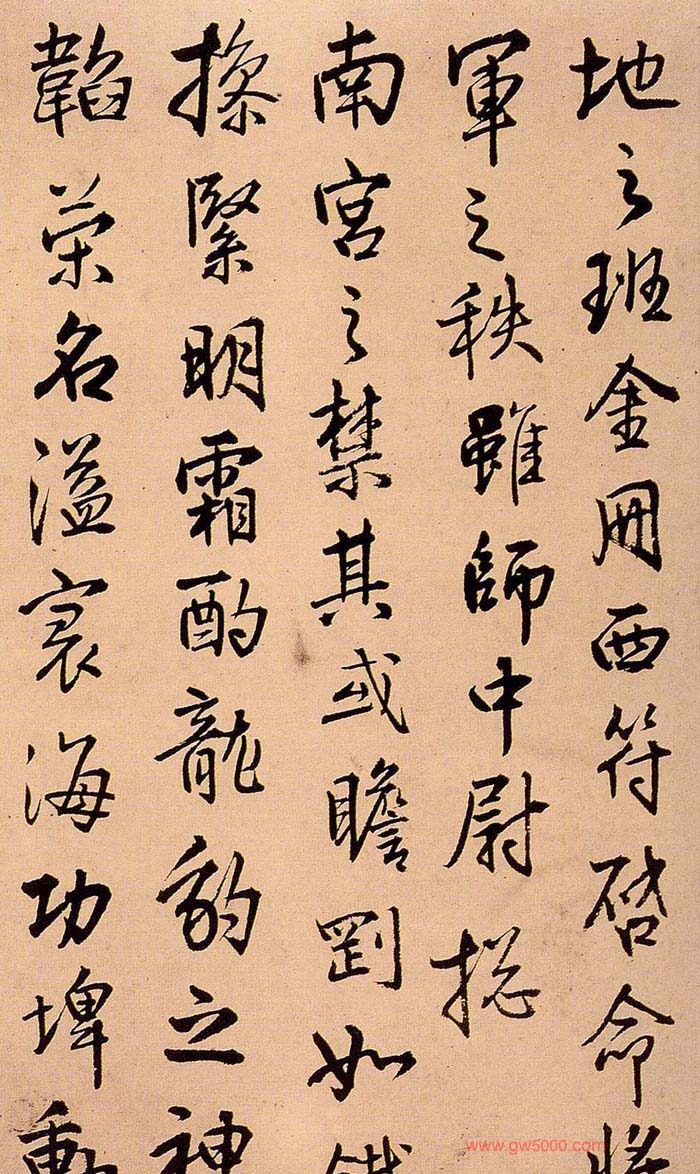 地之班金冊西符啓命將
軍之秩雖師中尉揔
南宮之禁其或膽剛如鐵
操緊明霜酌龍豹之神
韜榮名溢寰海功埤動
www.gw5000.com